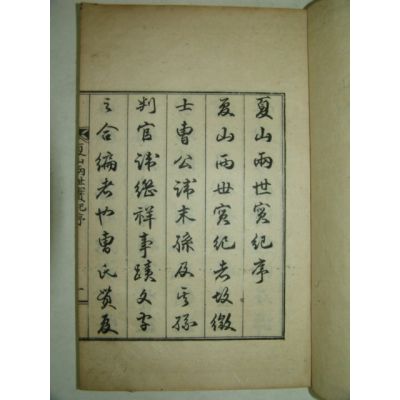 夏山兩世實紀序
夏山兩世實紀者故徵
士曹公諱末孫及其孫
判官諱繼祥事蹟文字
之合編者也曹氏貫夏
夏山兩世實紀序
一